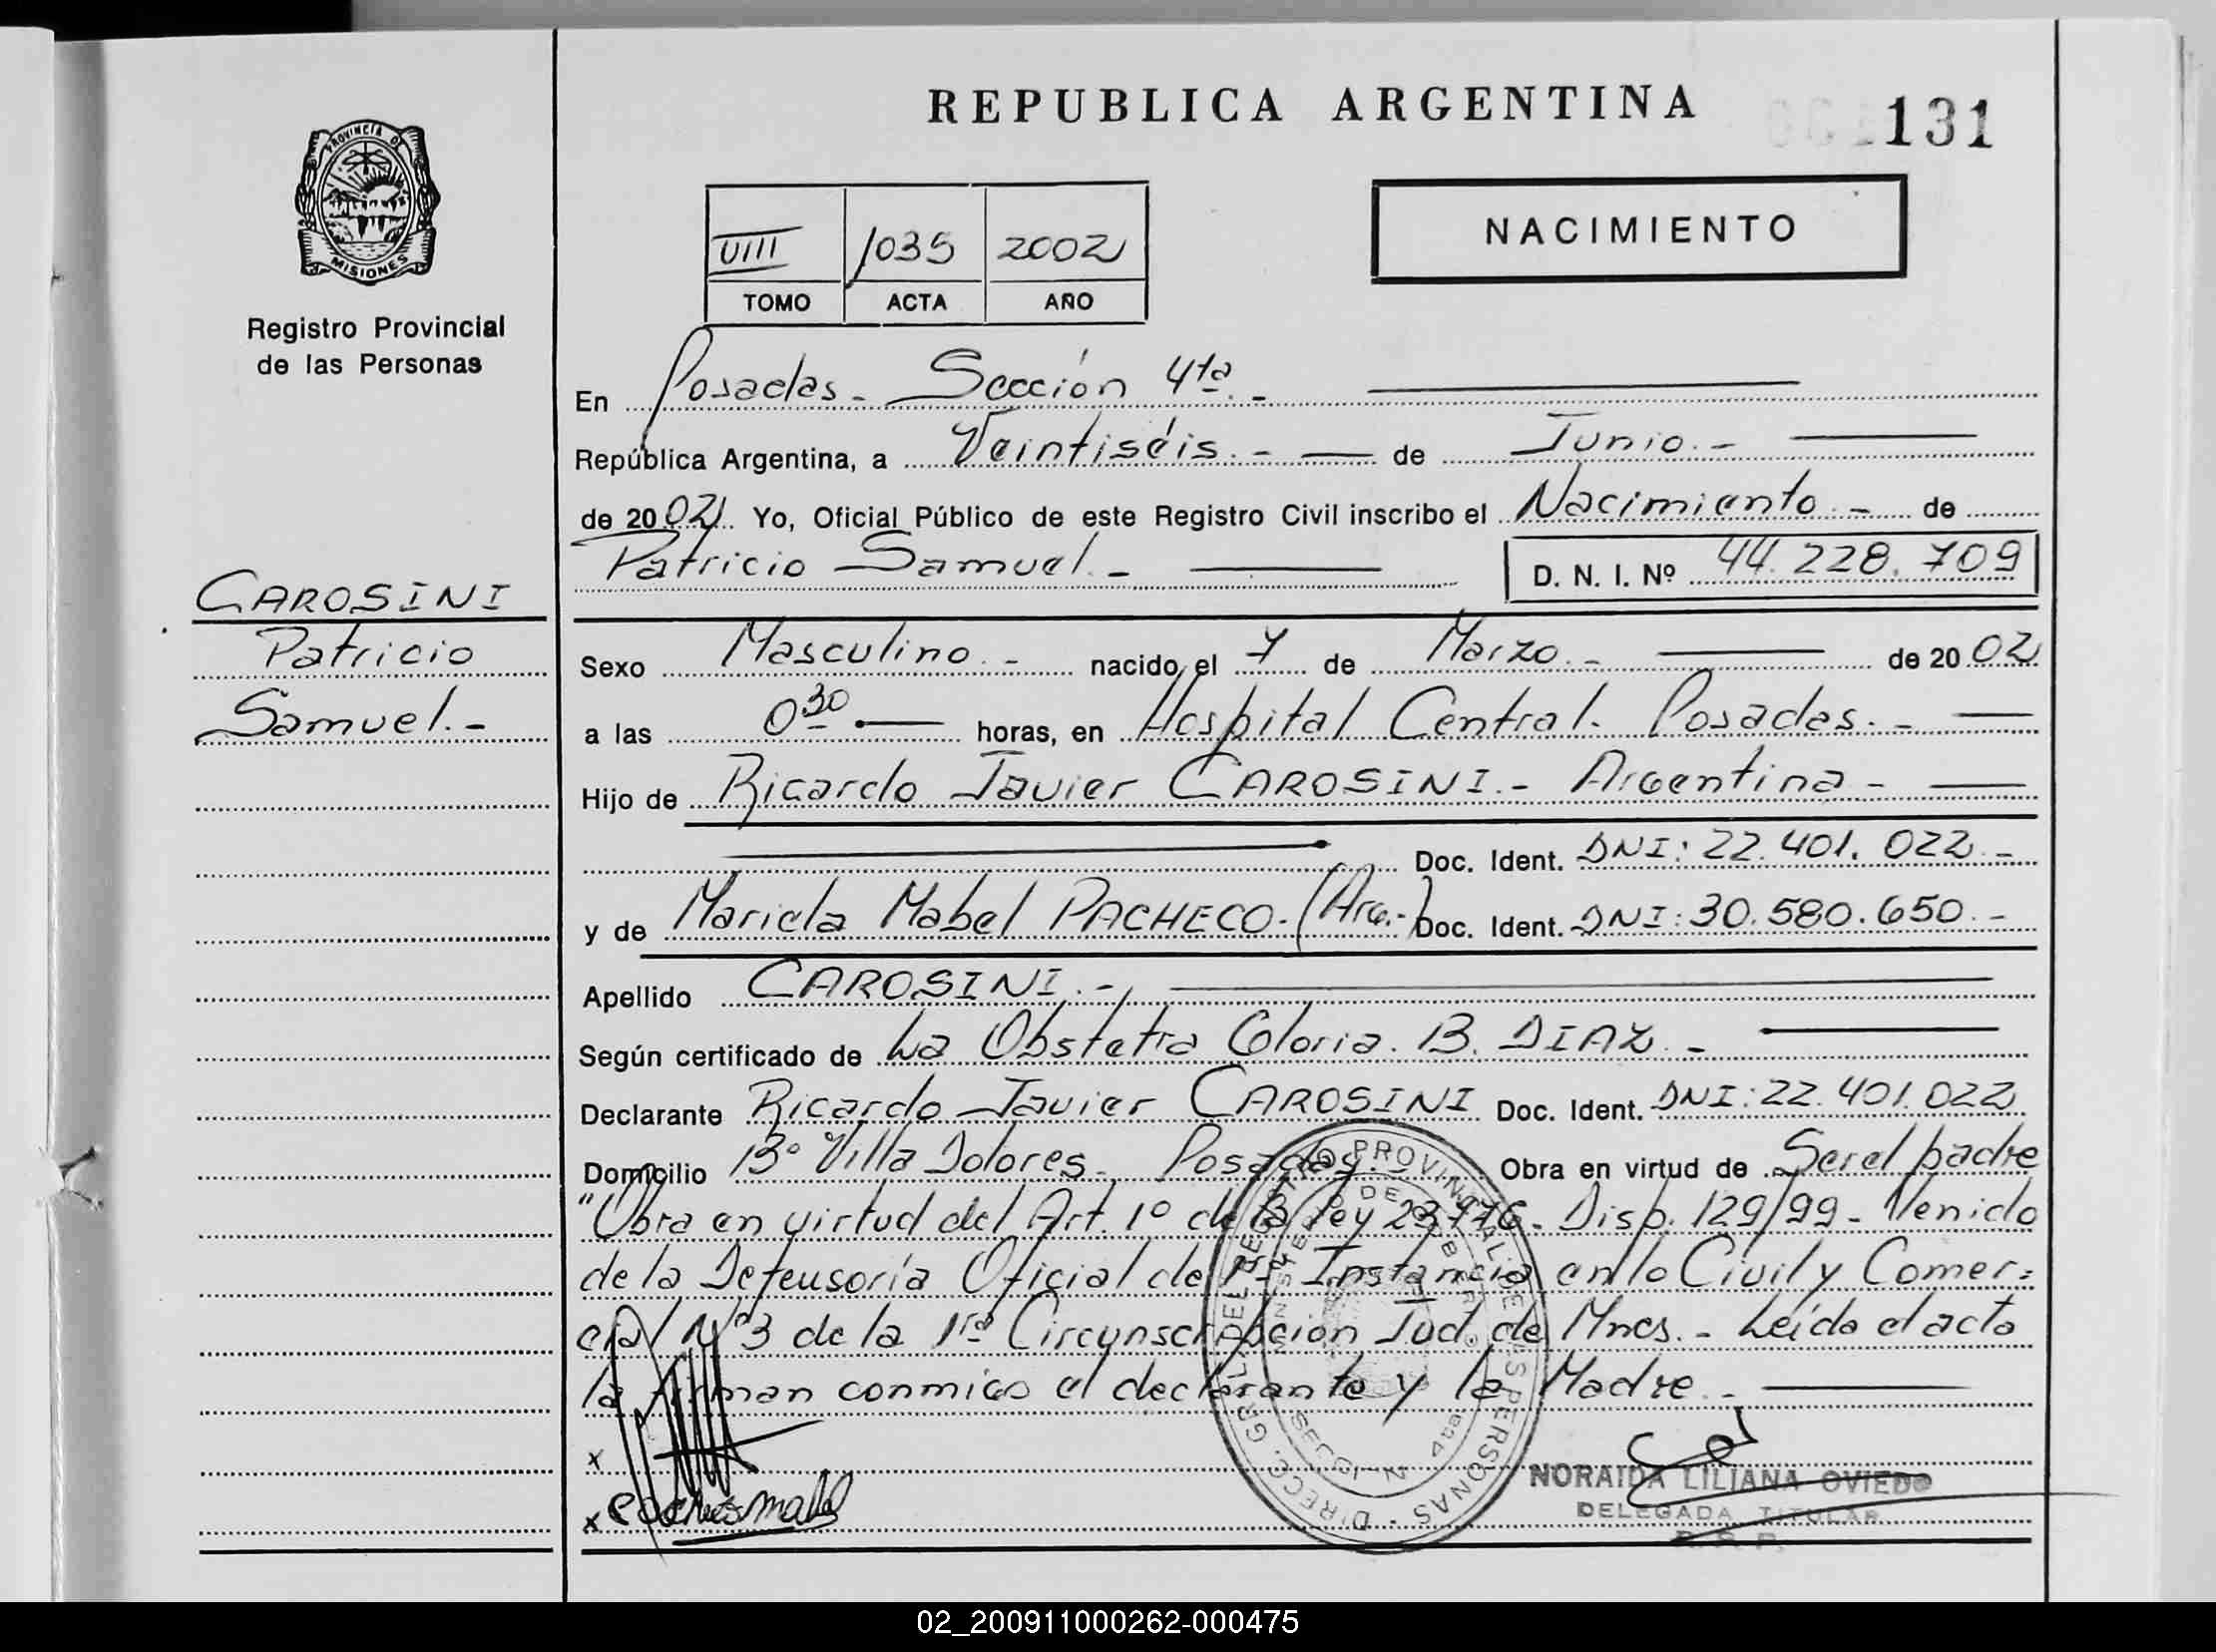 REPUBLICA ARGENTINA
131
PROVINCIA DE
MISIONES
Registro Provincial
de las Personas
NACIMIENTO
VIII 1035 2002
TOMO ACTA AÑO
En Posadas - Sección 4ta. -
República Argentina, a Veintiséis. - de Junio. -
de 2002 Yo, Oficial Público de este Registro Civil inscribo el Nacimiento - de
Patricio Samuel. - D. N. I. Nº 44.228.709
CAROSINI
Patricio
Samuel. -
Sexo Masculino. - nacido el 7 de Marzo. - de 2002
a las 0 30 horas, en Hospital Central. Posadas. -
Hijo de Ricardo Javier CAROSINI. - Argentina -
Doc. Ident. DNI: 22.401.022 -
y de Mariela Mabel PACHECO. (Arg.-) Doc. Ident. DNI: 30.580.650. -
Apellido CAROSINI. -
Según certificado de La Obstetra Gloria. B. DIAZ. -
Declarante Ricardo Javier CAROSINI Doc. Ident. DNI: 22.401.022
Domicilio Bº Villa Dolores - Posadas. Obra en virtud de Ser el padre
"Obra en virtud del Art. 1º de la ley - Disp. 129/99 - Venido
de la Defensoría Oficial de Instancia en lo Civil y Comer=
cial Nº3 de la 1ra Circunscripción Jud. de Mnes. - Leída el acta
la firman conmigo el declarante y la Madre. -
x
x
DIRECC. GRAL. DEL REGISTRO PROVINCIAL DE LAS PERSONAS
NORAIDA LILIANA OVIEDO
DELEGADA TITULAR
02_200911000262-000475